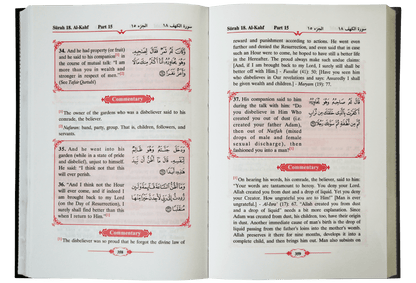 Sūrah 18. Al-Kahf Part 15 الجزء ١٥ سورة الكهف ١٨
34. And he had property (or fruit)
and he said to his companion in
the course of mutual talk: "I am
more than you in wealth and
stronger in respect of men."
(See Tafsir Qurtubi)
Commentary
The owner of the gardens who was a disbeliever said to his
comrade, the believer.
Nafaran: band, party, group. That is, children, followers, and
servants.
35. And he went into his
garden (while in a state of pride
and disbelief), unjust to himself.
He said: "I think not that this
will ever perish.
36. "And I think not the Hour
will ever come, and if indeed I
am brought back to my Lord
(on the Day of Resurrection), I
surely shall find better than this
when I return to Him."
Commentary
The disbeliever was so proud that he forgot the divine law of
308
Sūrah 18. Al-Kahf Part 15 الجزء ١٥ سورة الكهف ١٨
reward and punishment according to actions. He went even
further and denied the Resurrection, and even said that in case
such an Hour were to come, he hoped to have still a better life
in the Hereafter. The proud always make such undue claims:
[And, if I am brought back to my Lord, I surely will still be
better off with Him.] - Fussilat (41): 50; [Have you seen him
who disbelieves in Our revelations and says: Assuredly I shall
be given wealth and children.] - Maryam (19): 77.
37. His companion said to him
during the talk with him: "Do
you disbelieve in Him Who
created you out of dust (i.e.
created your father Adam),
then out of Nutfah (mixed
drops of male and female
sexual discharge), then
fashioned you into a man?
Commentary
On hearing his words, his comrade, the believer, said to him:
"Your words are tantamount to heresy. You deny your Lord.
Allah created you from dust and a drop of liquid. Yet you deny
your Creator. How ungrateful you are to Him!" [Man is ever
ungrateful.] - Al-Isra' (17): 67. "Allah created you from dust
and a drop of liquid," needs a bit more explanation. Since
Adam was created from dust, his children, too, have their origin
in dust. Another immediate cause of man's birth is the drop of
liquid passing from the father's loins into the mother's womb.
Allah preserves it there for nine months, develops it into a
complete child, and then brings him out. Man also subsists on
309